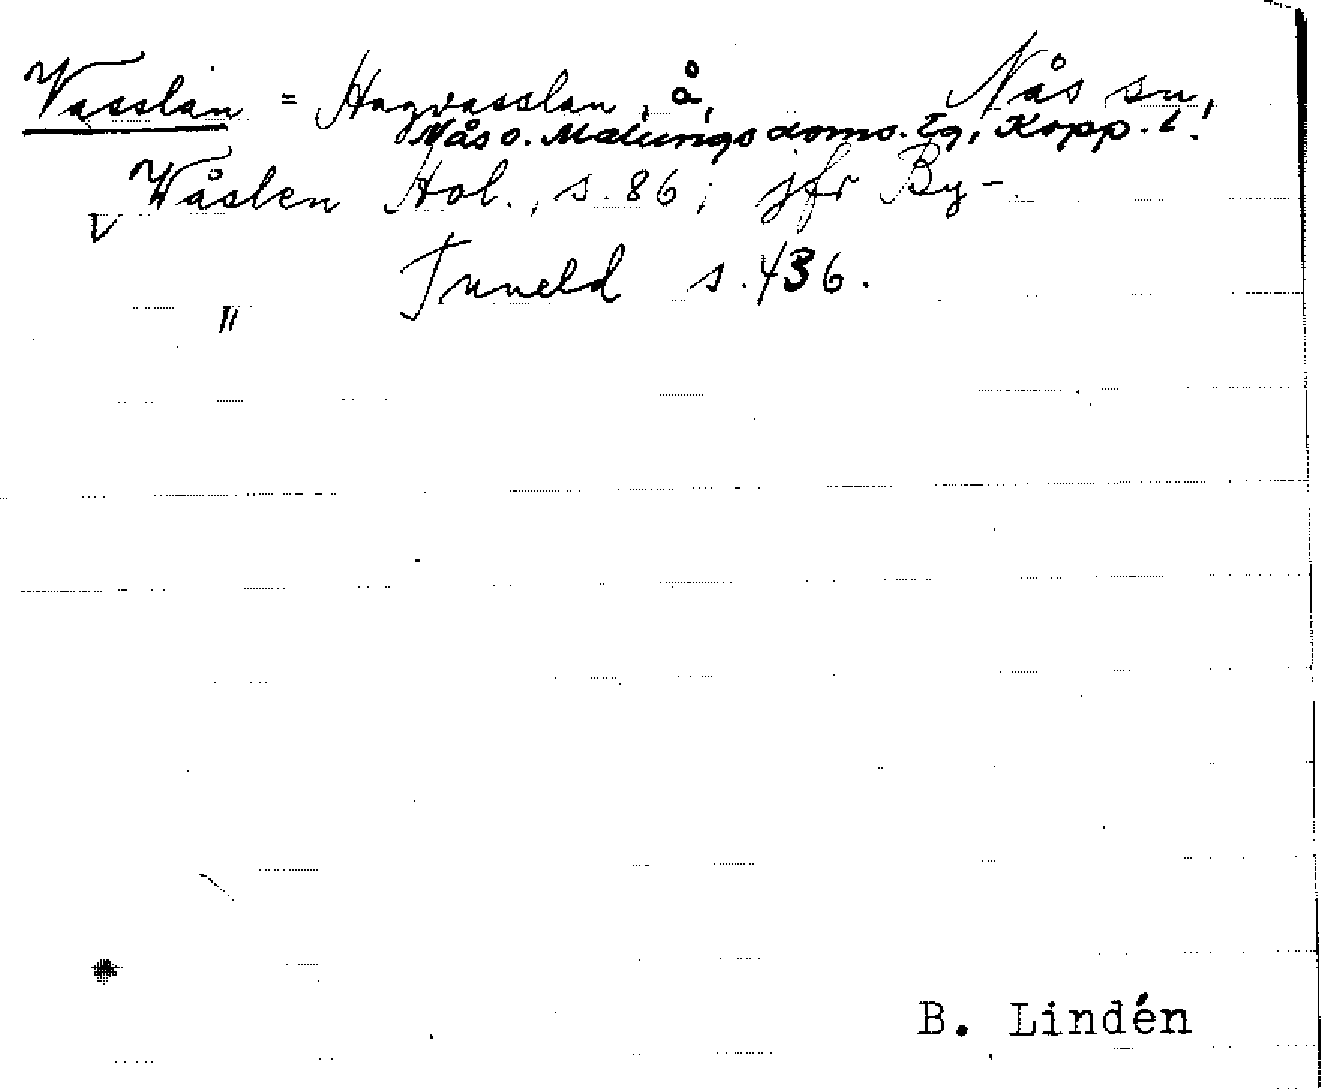 Vasslan = Hagvasslan, å, Nås sn,
Nås o. Malungs doms. tg, Kopp. l.
V Wåslen Hol., s. 86; jfr By-.
" Tuneld s. 436.
B. Lindén